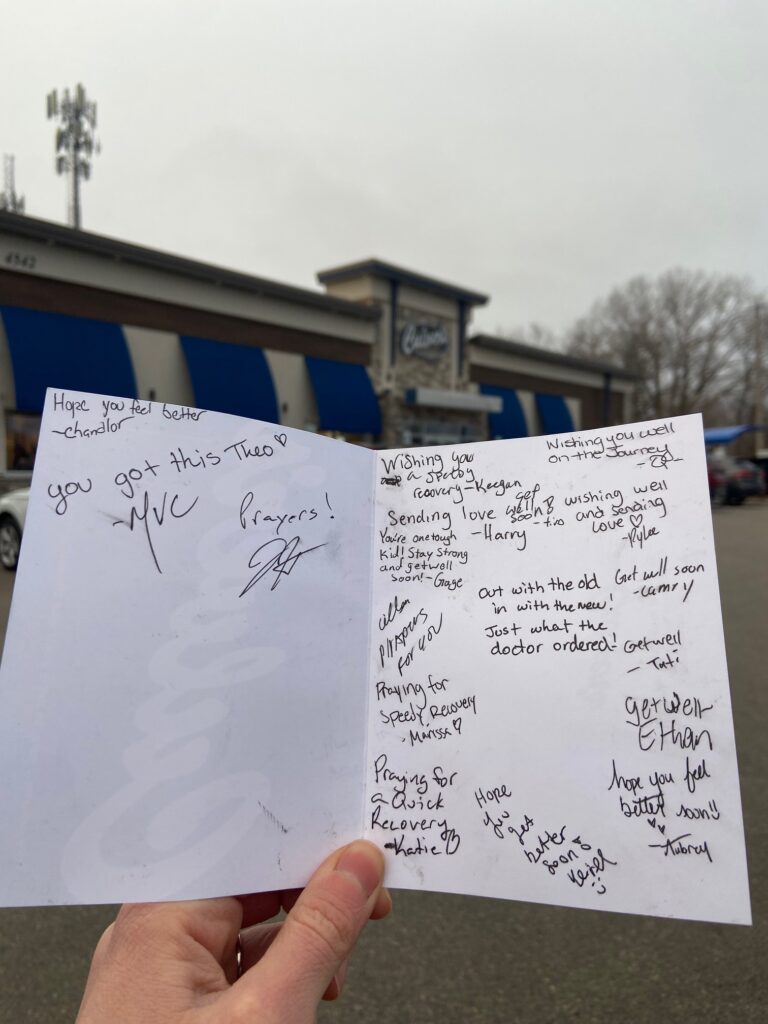 4542
Culver's
Hope you feel better
-chandlor
you got this Theo♡
-MVC
Prayers!
Wishing you
a speedy
recovery-Keegan
Wishing you well
on the Journey
Sending love
-Harry
get
well
soon
wishing well
and sending
love♡
-Rylee
You're one tough
kid! Stay strong
and get well
soon!-Gage
Out with the old
in with the new!
Just what the
doctor ordered!
Get well soon
-Camry
PRAYERS
FOR YOU
Get well
- Tuti
Praying for
Speedy Recovery
- Marissa♡
get well
Ethan
Praying for
a Quick
Recovery
-Katie♡
Hope
you
get
better
soon
hope you feel
better soon!!
-Aubrey